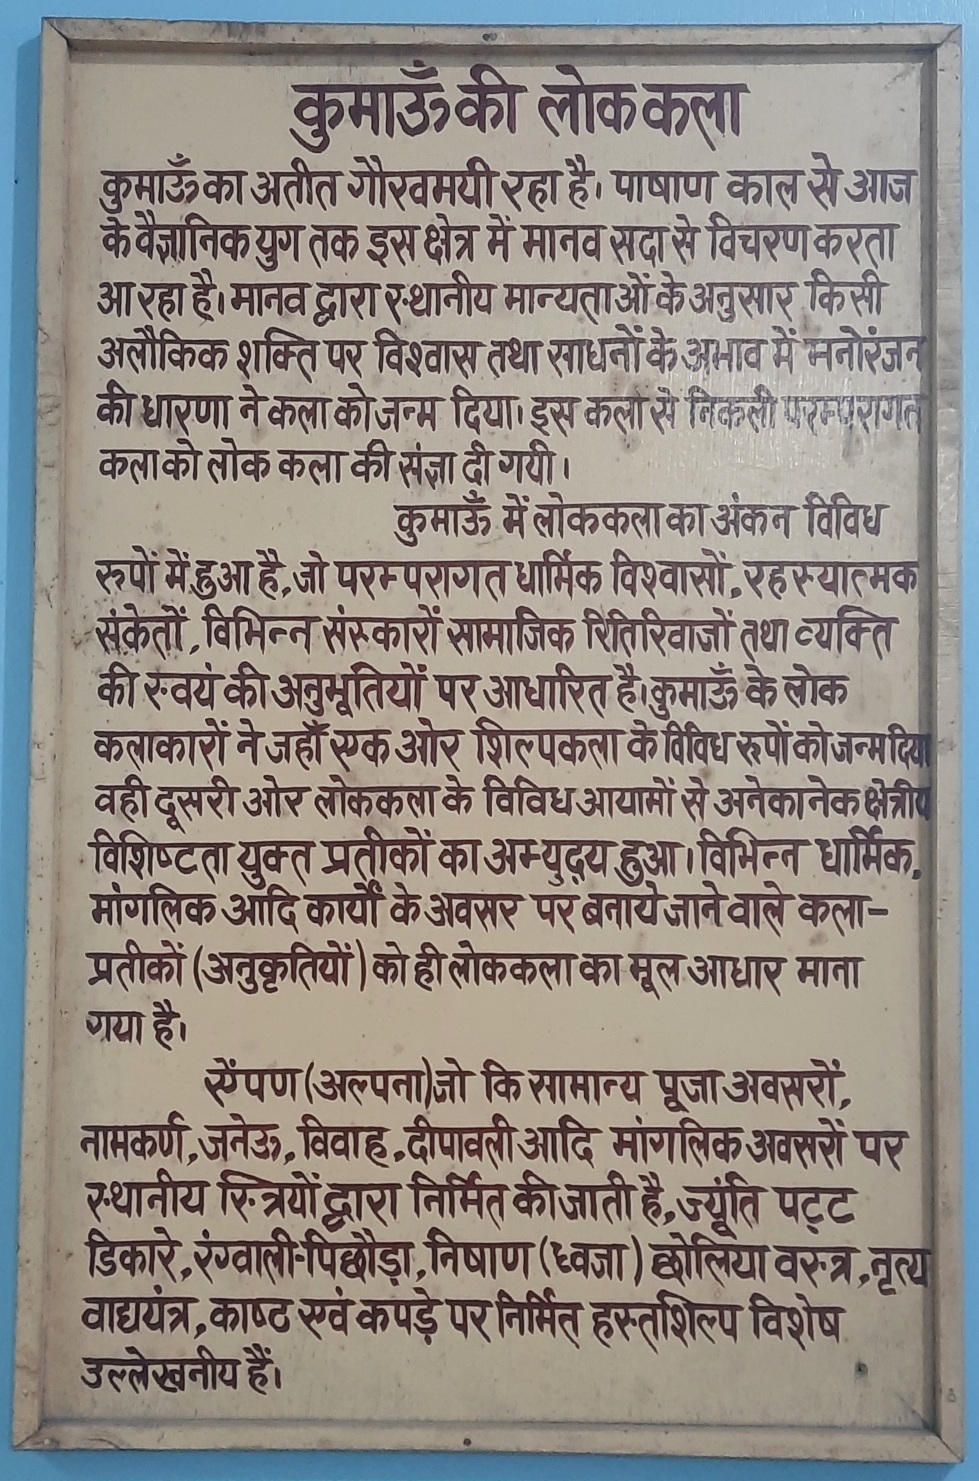 कुमाऊँ की लोक कला
कुमाऊँ का अतीत गौरवमयी रहा है। पाषाण काल से आज
के वैज्ञानिक युग तक इस क्षेत्र में मानव सदा से विचरण करता
आ रहा है। मानव द्वारा स्थानीय मान्यताओं के अनुसार किसी
अलौकिक शक्ति पर विश्वास तथा साधनों के अभाव में मनोरंजन
की धारणा ने कला को जन्म दिया। इस कला से निकली परम्परागत
कला को लोक कला की संज्ञा दी गयी।
कुमाऊँ में लोककला का अंकन विविध
रुपों में हुआ है, जो परम्परागत धार्मिक विश्वासों, रहस्यात्मक
संकेतों, विभिन्न संस्कारों सामाजिक रितिरिवाजों तथा व्यक्ति
की स्वयं की अनुभूतियों पर आधारित है। कुमाऊँ के लोक
कलाकारों ने जहाँ एक ओर शिल्पकला के विविध रुपों को जन्म दिया
वही दूसरी ओर लोककला के विविध आयामों से अनेकानेक क्षेत्रीय
विशिष्टता युक्त प्रतीकों का अभ्युदय हुआ। विभिन्न धार्मिक,
मांगलिक आदि कार्यों के अवसर पर बनाये जाने वाले कला-
प्रतीकों (अनुकृतियों) को ही लोककला का मूल आधार माना
गया है।
ऐंपण (अल्पना) जो कि सामान्य पूजा अवसरों,
नामकर्ण, जनेऊ, विवाह, दीपावली आदि मांगलिक अवसरों पर
स्थानीय स्त्रियों द्वारा निर्मित की जाती है, ज्यूंति पट्ट
डिकारे, रंग्वाली-पिछौड़ा, निषाण (ध्वजा) छोलिया वस्त्र, नृत्य
वाद्ययंत्र, काष्ठ एवं कपड़े पर निर्मित हस्तशिल्प विशेष
उल्लेखनीय हैं।